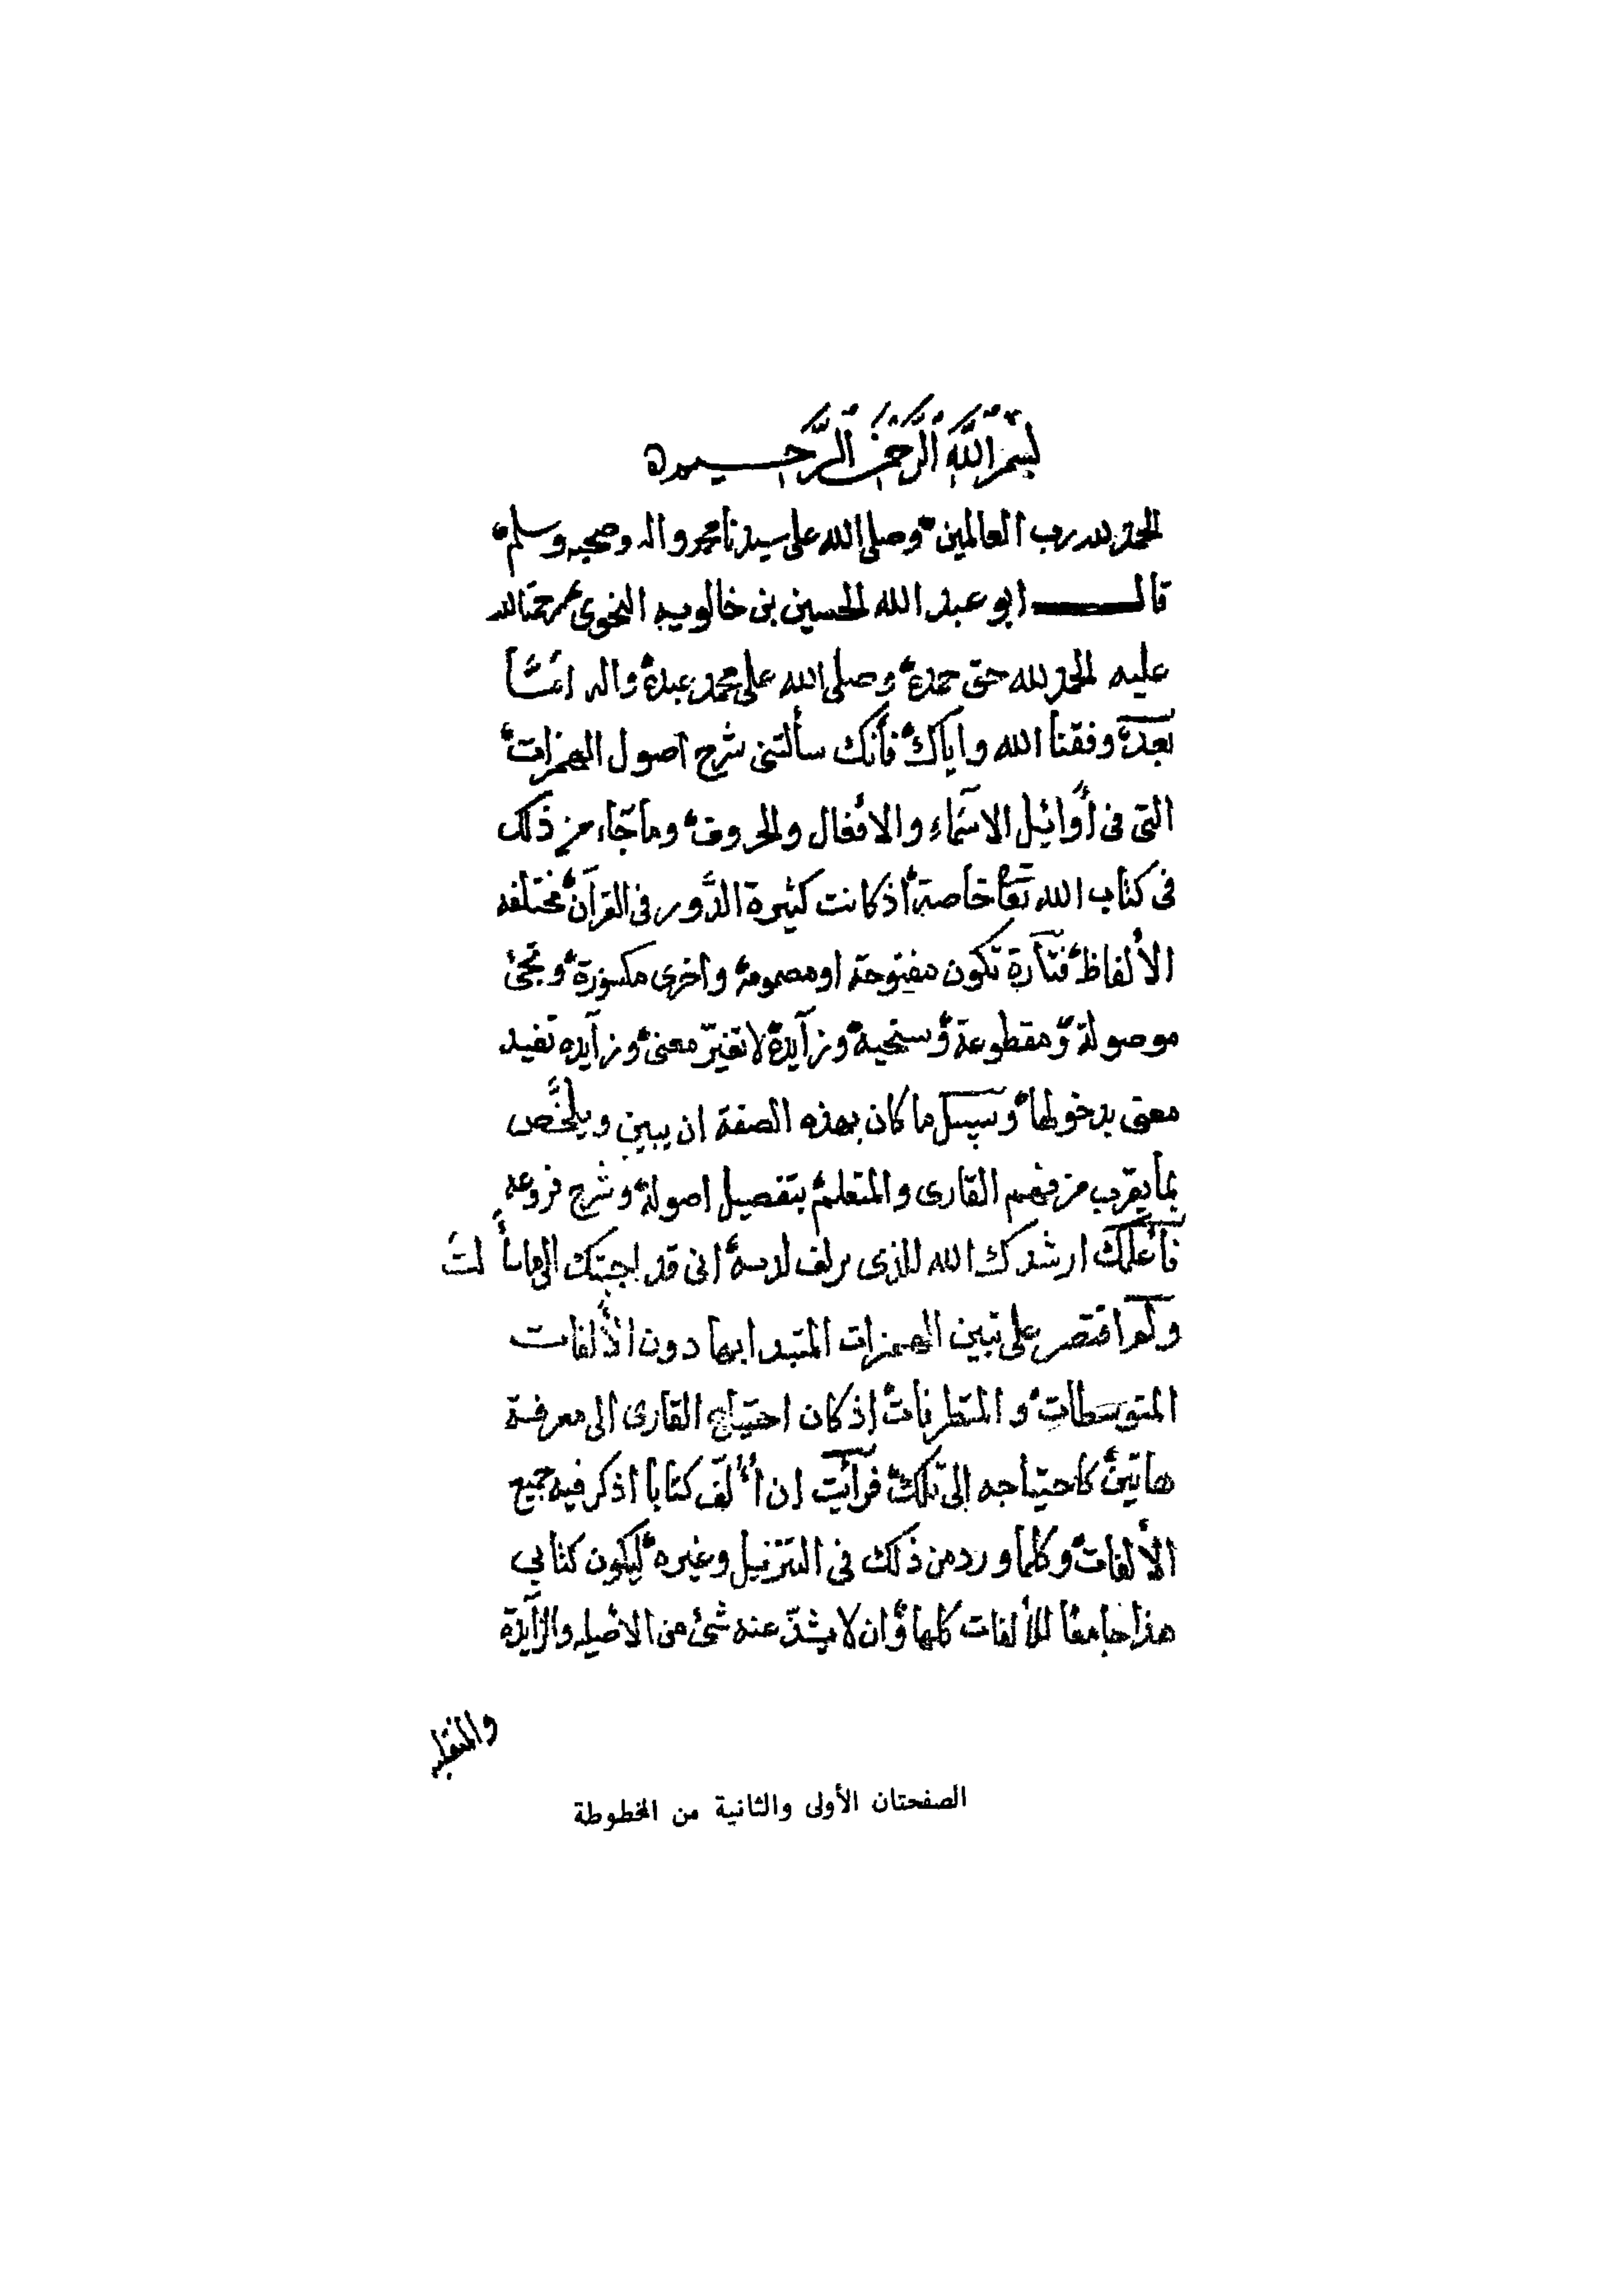 بسم الله الرحمن الرحيم
الحمد لله رب العالمين وصلى الله على سيدنا محمد واله وصحبه وسلم
قال ابو عبد الله الحسين بن خالويه النحوى رحمة الله
عليه الحمد لله حق حمده وصلى الله على محمد عبده واله امّا
بعد وفقنا الله واياك فأنك سألتنى شرح اصول الهمزات
التى فى أوائل الاسماء والافعال والحروف وما جاء من ذلك
فى كتاب الله تعا خاصة اذ كانت كثيرة الدَّور فى القرآن مختلفه
الألفاظ فتارة تكون مفتوحة او مضمومة واخرى مكسورة وتجئ
موصولة ومقطوعة وسنخية وزآيدة لا تغيّر معنى وزآيده تفيد
معنى بدخولها وسبيل ما كان بهذه الصفة ان يبين ويلخَّص
بما يقرب من فهم القارى والمتعلم بتفصيل اصوله وشرح فروعه
فأعلمك ارشدك الله للذى يزلف لديه انى قد اجبتك الى ما سألت
ولم اقتصر على تبين الهمزات المتبدا بها دون الألفات
المتوسطات والمتطرفات إذ كان احتياج القارى الى معرفة
هاتين كاحتياجه إلى تلك فرأيت ان أُألّف كتابا اذكر فيه جميع
الألفات وكلما ورد من ذلك فى التنزيل وغيره ليكون كتابي
هذا جامعا للألفات كلها وان لا يشذّ عنه شئ من الاصليه والزآيدة
والمنقلبه
الصفحتان الأولى والثانية من المخطوطة